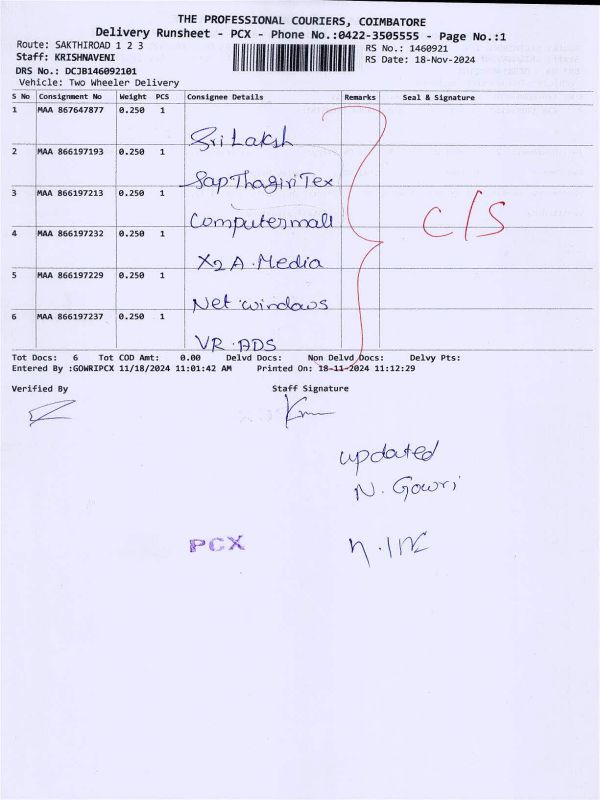 THE PROFESSIONAL COURIERS, COIMBATORE
Delivery Runsheet - PCX - Phone No.:0422-3505555 - Page No.:1
Route: SAKTHIROAD 1 2 3
RS No.: 1460921
Staff: KRISHNAVENI
RS Date: 18-Nov-2024
DRS No.: DCJB146092101
Vehicle: Two Wheeler Delivery
S No Consignment No Weight PCS Consignee Details Remarks Seal & Signature
1 MAA 867647877 0.250 1 Sri Laksh
2 MAA 866197193 0.250 1 SapThagiriTex
3 MAA 866197213 0.250 1 Computermall
4 MAA 866197232 0.250 1 X2 A.Media
5 MAA 866197229 0.250 1 Net.windows
6 MAA 866197237 0.250 1 VR.ADS
C/S
Tot Docs: 6 Tot COD Amt: 0.00 Delvd Docs: Non Delvd Docs: Delvy Pts:
Entered By :GOWRIPCX 11/18/2024 11:01:42 AM Printed On: 18-11-2024 11:12:29
Verified By Staff Signature
updated
N. Gowri
PCX